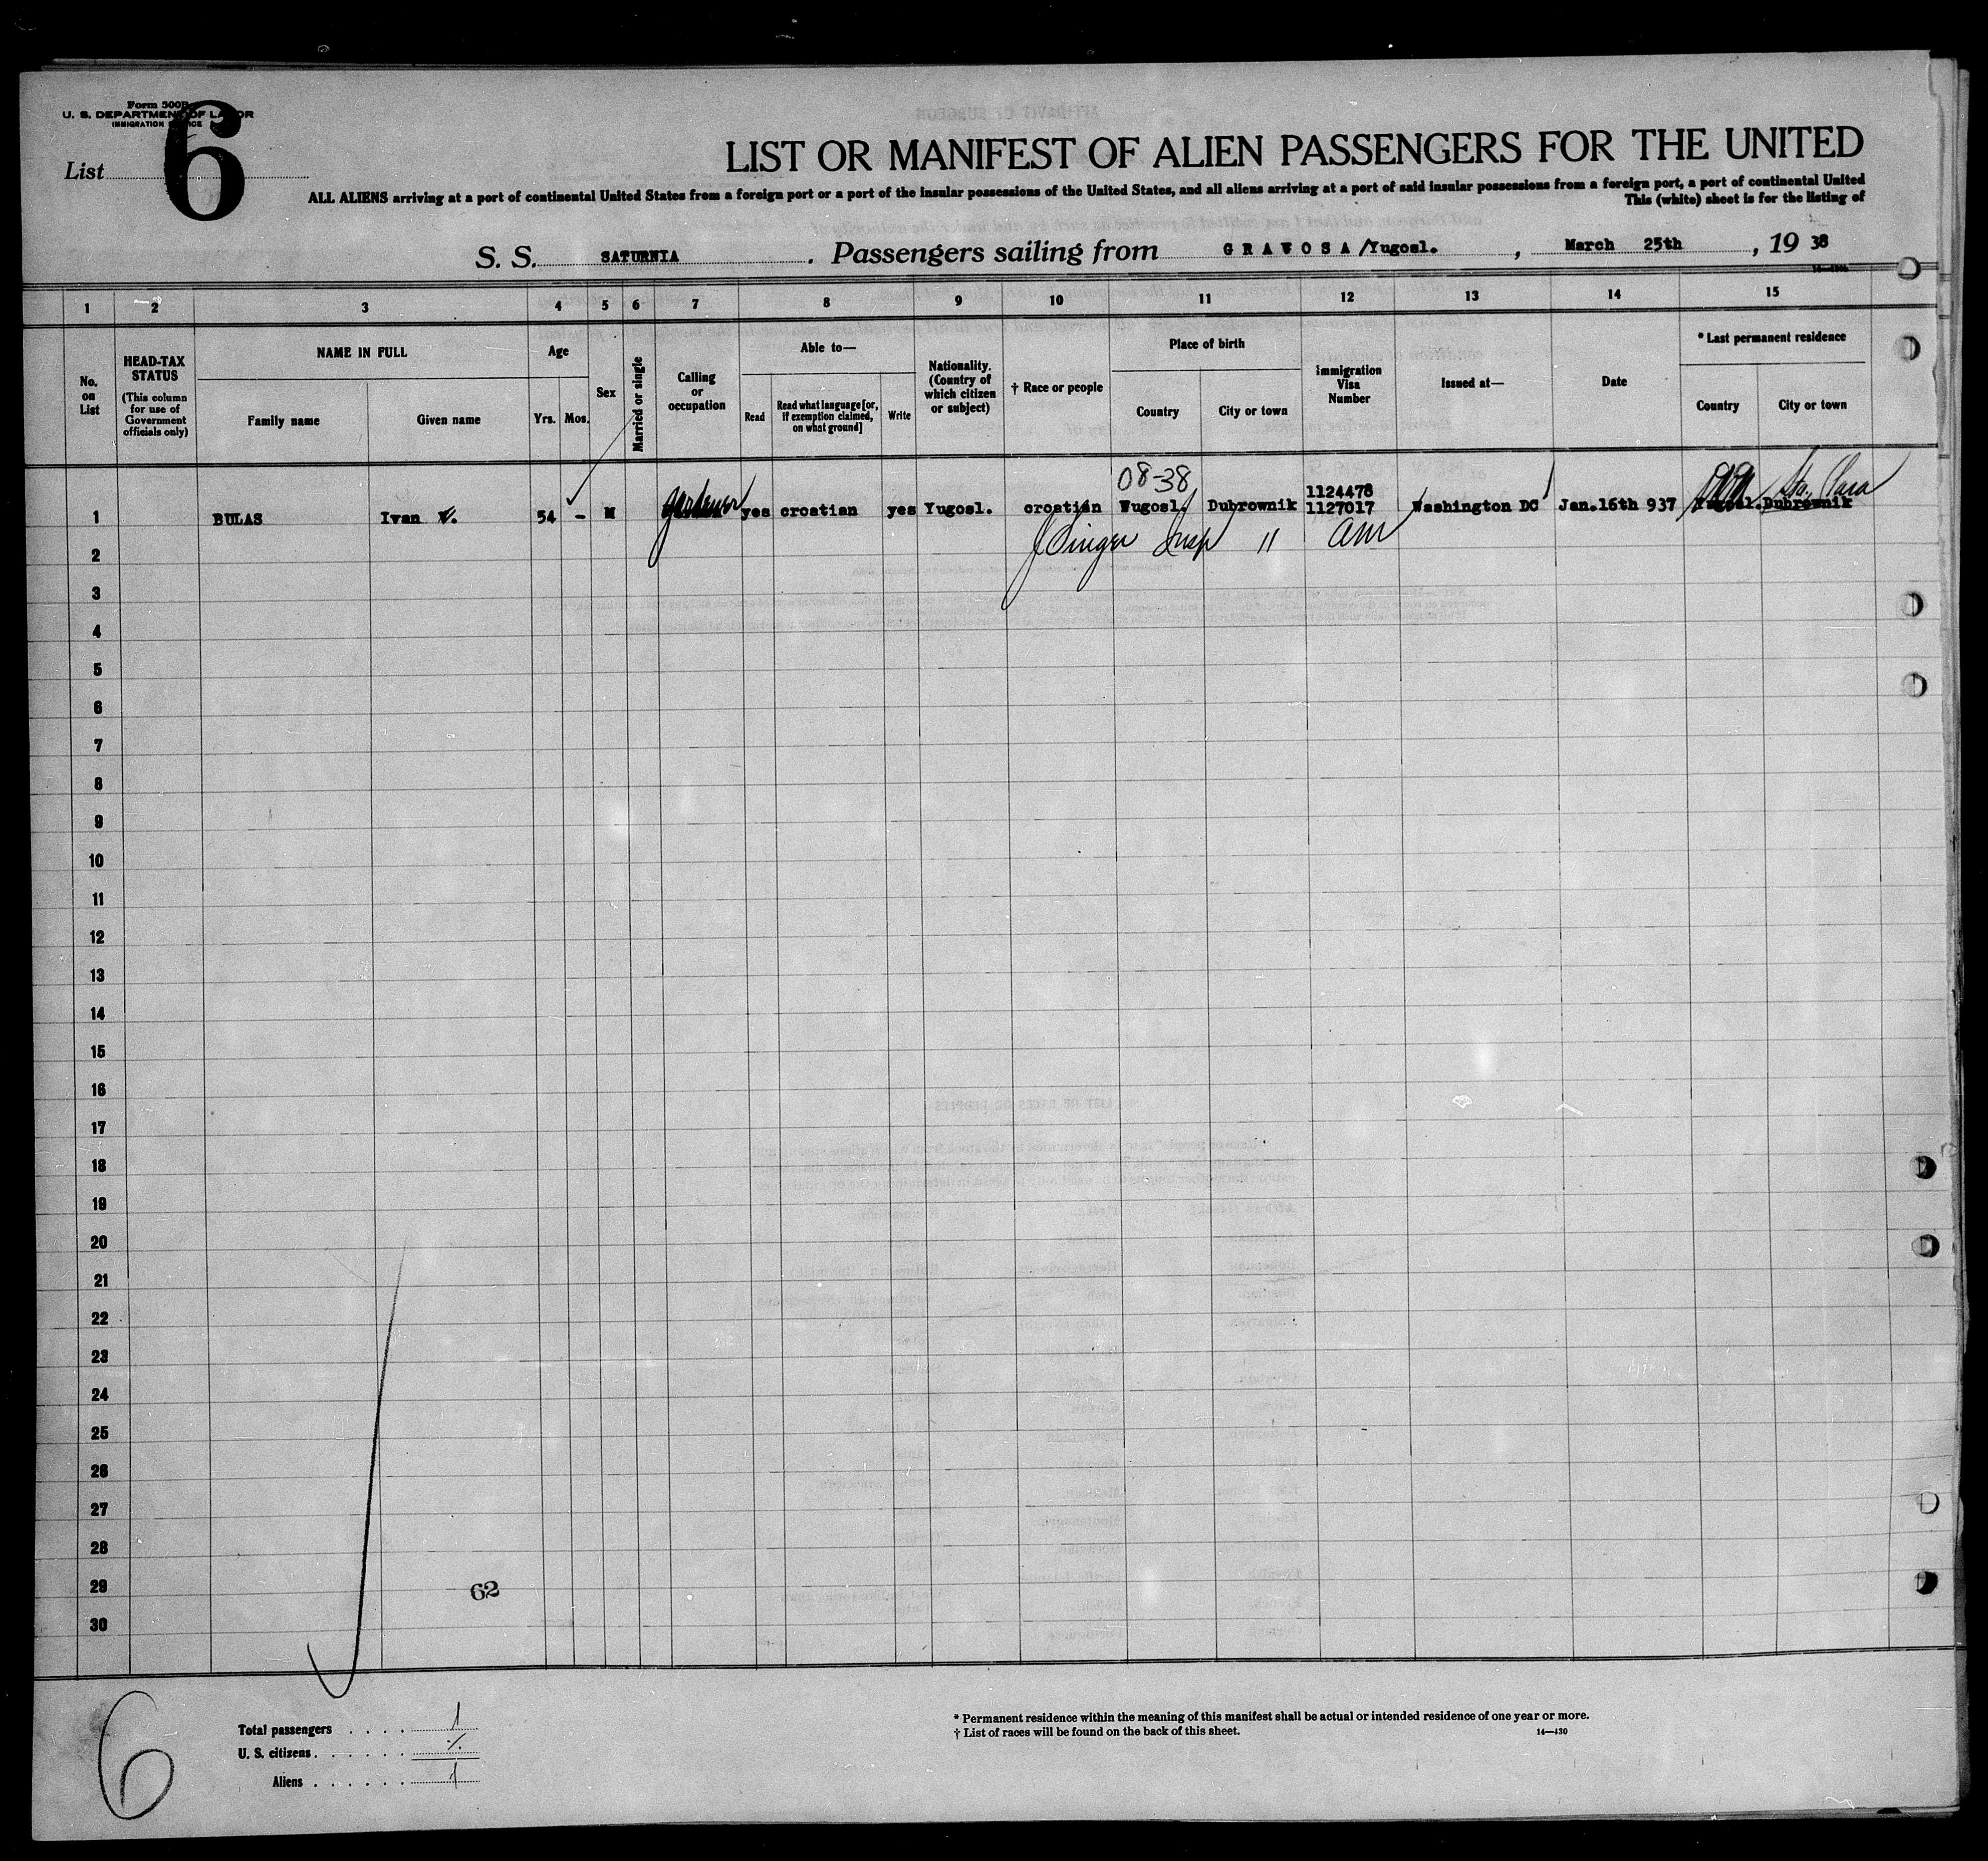 Form 500B
U. S. DEPARTMENT OF LABOR
IMMIGRATION SERVICE
List 6
LIST OR MANIFEST OF ALIEN PASSENGERS FOR THE UNITED
ALL ALIENS arriving at a port of continental United States from a foreign port or a port of the insular possessions of the United States, and all aliens arriving at a port of said insular possessions from a foreign port, a port of continental United
This (white) sheet is for the listing of
S. S. SATURNIA . Passengers sailing from GRAVOSA/Yugosl. , March 25th , 19 38
1 2 3 4 5 6 7 8 9 10 11 12 13 14 15
No. on List
HEAD-TAX STATUS
(This column for use of Government officials only)
NAME IN FULL
Family name
Given name
Age
Yrs. Mos.
Sex
Married or single
Calling or occupation
Able to—
Read
Read what language [or, if exemption claimed, on what ground]
Write
Nationality. (Country of which citizen or subject)
† Race or people
Place of birth
Country
City or town
Immigration Visa Number
Issued at—
Date
* Last permanent residence
Country
City or town
08-38
Sta. Clara
1124478
1 BULAS Ivan 54 - M gardener yes croatian yes Yugosl. croatian Wugosl. Dubrownik 1127017 Washington DC Jan.16th 937 Yugosl. Dubrownik
Insp 11 am
2
3
4
5
6
7
8
9
10
11
12
13
14
15
16
17
18
19
20
21
22
23
24
25
26
27
28
29
62
30
6
Total passengers . . . . 1
U. S. citizens . . . . . . ·/.
Aliens . . . . . . 1
* Permanent residence within the meaning of this manifest shall be actual or intended residence of one year or more.
† List of races will be found on the back of this sheet.
14—430